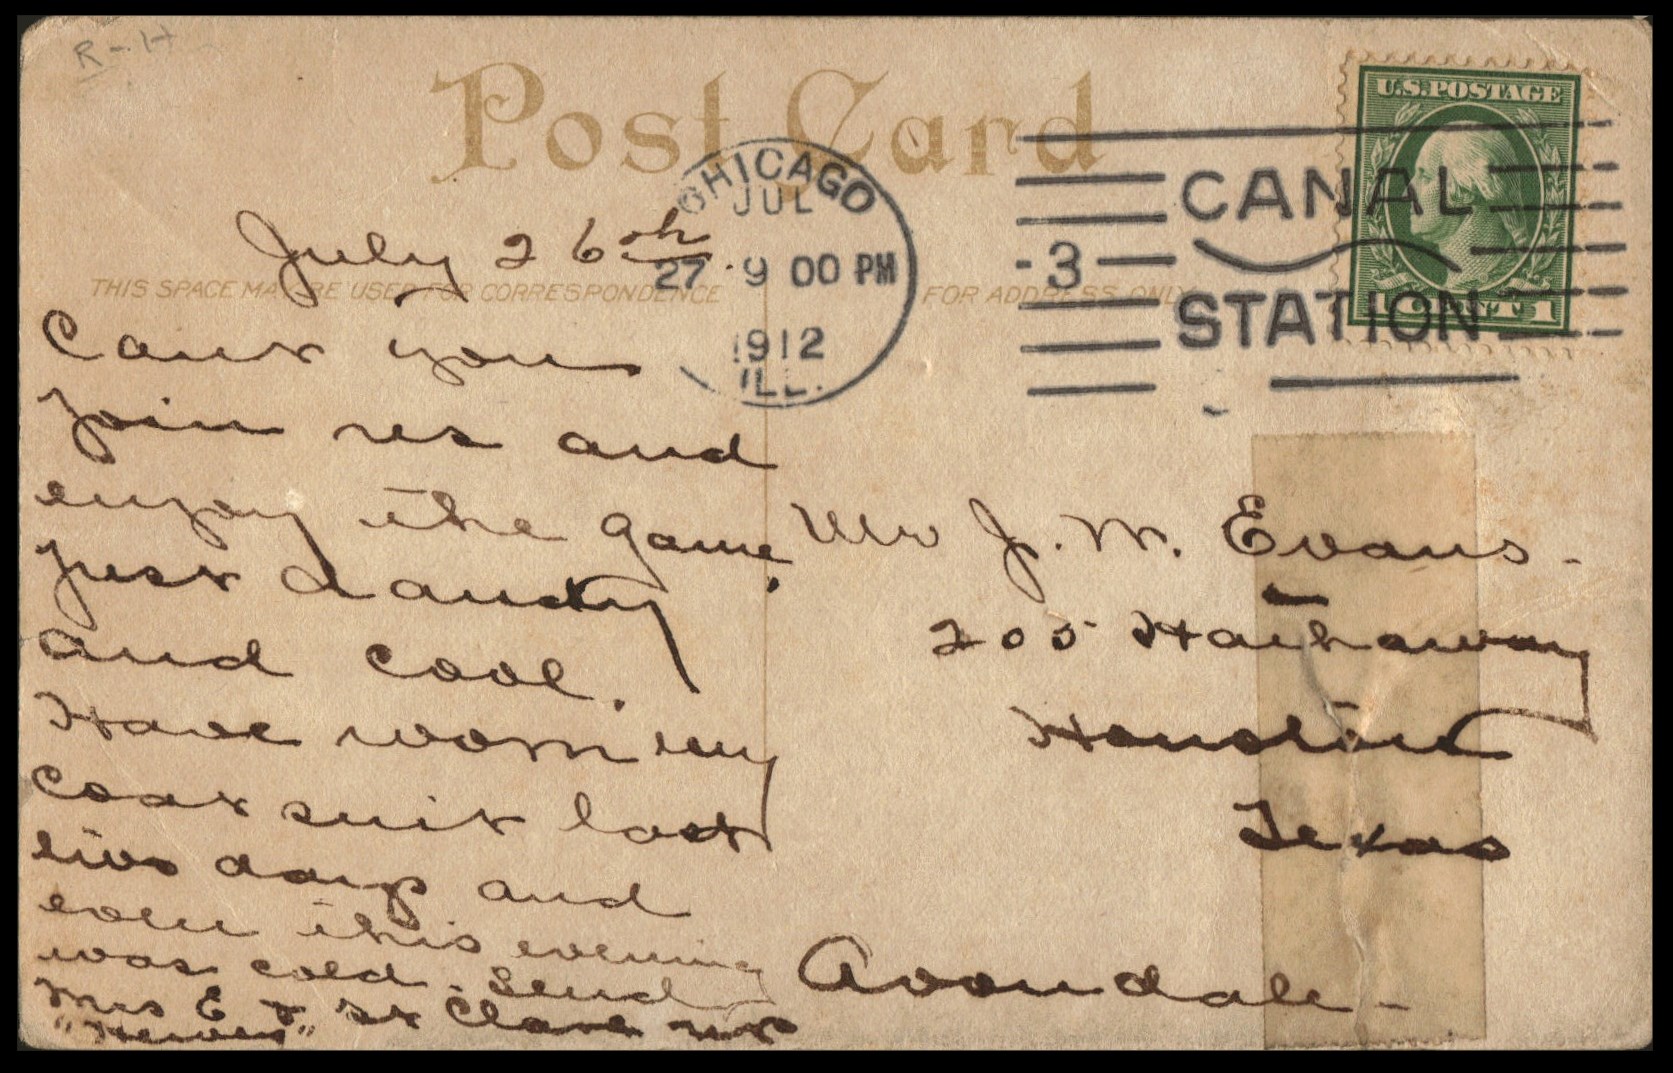 R-H
Post Card
U.S. POSTAGE
CHICAGO
JUL
27 9 00 PM
1912
ILL.
CANAL
3
STATION
1 CENT 1
THIS SPACE MAY BE USED FOR CORRESPONDENCE
FOR ADDRESS ONLY
July 26th
Cant you
join us and
enjoy the game.
Just dandy
and cool.
Have worn my
coat suit last
two days and
even this evening
was cold. Send
Mrs E St Clare
Mr J. M. Evans.
205 Hathaway
Houston
Texas
Avondale